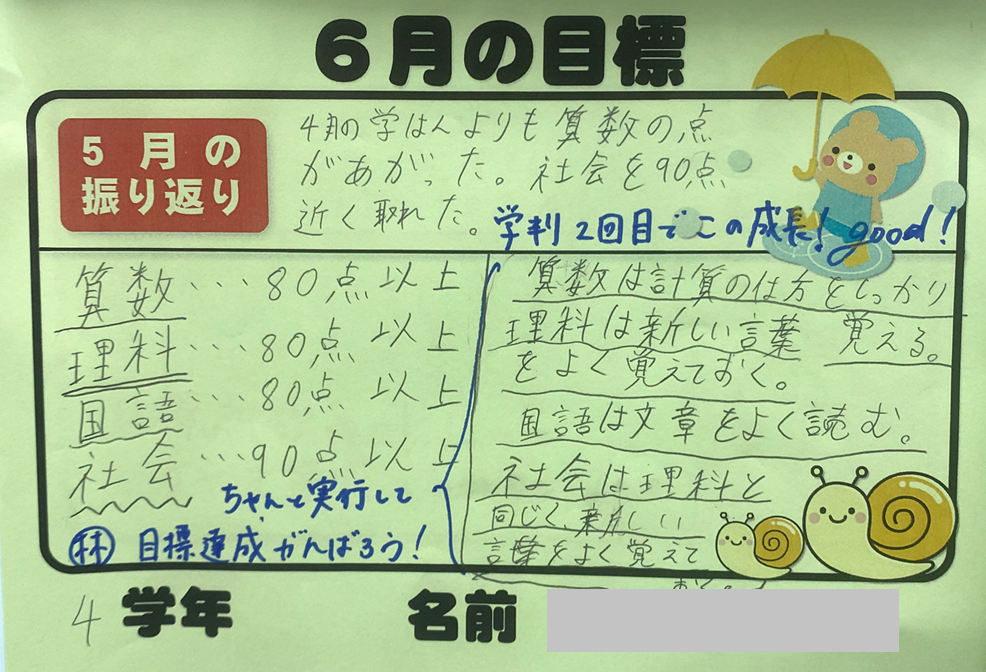 6月の目標
5月の
振り返り
4月の学はんよりも算数の点
があがった。社会を90点
近く取れた。
学判2回目でこの成長!good!
算数…80点以上
理科…80点以上
国語…80点以上
社会…90点以上
ちゃんと実行して
林 目標達成がんばろう!
算数は計算の仕方をしっかり
覚える。
理科は新しい言葉
をよく覚えておく。
国語は文章をよく読む。
社会は理科と
同じく、新しい
言葉をよく覚えて
4 学年
名前